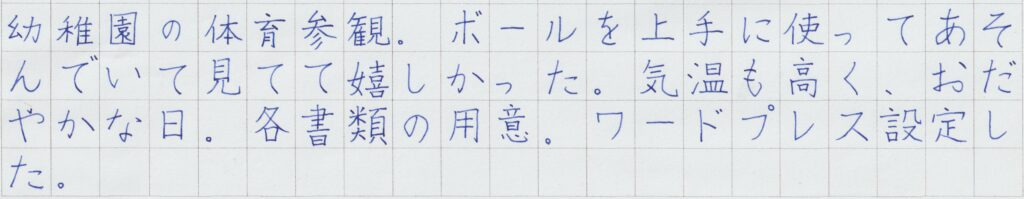 幼稚園の体育参観。ボールを上手に使ってあそ
んでいて見てて嬉しかった。気温も高く、おだ
やかな日。各書類の用意。ワードプレス設定し
た。